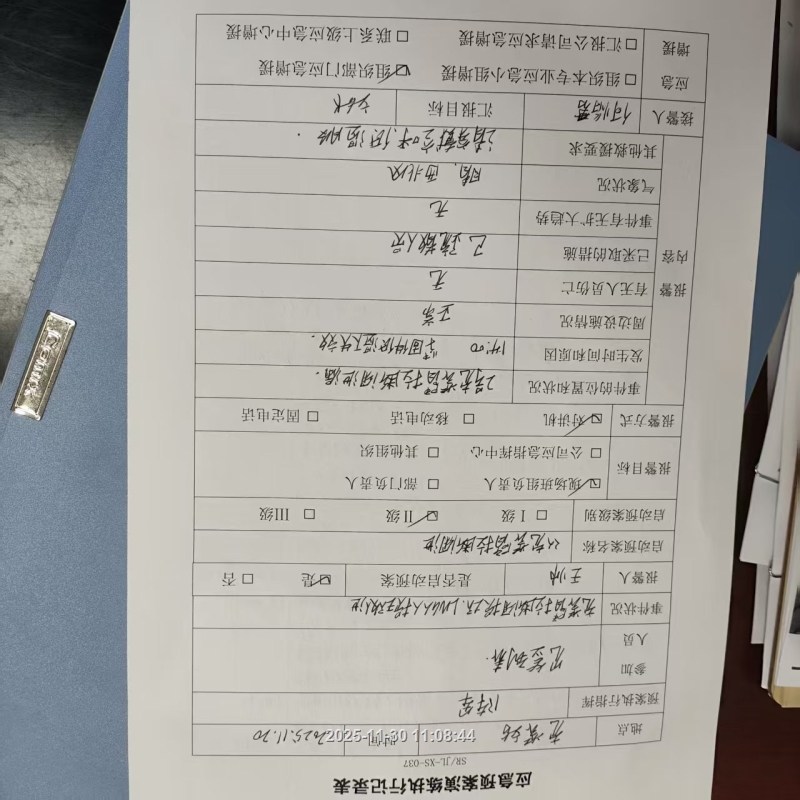 应急预案演练执行记录表
SR/JL-XS-037
地点 充装站 时间 2025.11.20
预案执行指挥
参加人员 见签到表
事件状况 充装臂拉断阀损坏、LNG大量泄
报警人 王帅 是否启动预案 ☑是 □否
启动预案名称 充装臂拉断阀泄
启动预案级别 □Ⅰ级 ☑Ⅱ级 □Ⅲ级
报警目标 ☑现场班组负责人 □部门负责人
□公司应急指挥中心 □其他组织
报警方式 ☑对讲机 □移动电话 □固定电话
报警内容
事件的位置和状况 2号充装臂拉断阀泄漏.
发生时间和原因 14:00 紧固件低温下失效.
周边设施情况 正常
有无人员伤亡 无
已采取的措施 已疏散人员
事件有无扩大趋势 无
气象状况 晴,西北风
其他救援要求
接警人 汇报目标
应急增援 □组织本专业应急小组增援 ☑组织部门应急增援
□汇报公司请求应急增援 □联系上级应急中心增援
2025-11-30 11:08:44